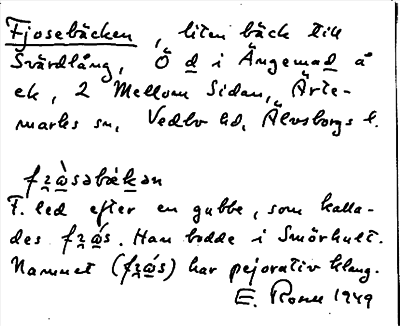 Fjosebäcken, liten bäck till
Svärdlång, Ö d i Ängemad å
ek, 2 Mellom Sidan, Ärte-
marks sn, Vedbo hd, Älvsborgs l.
F. led efter en gubbe, som kalla-
des. Han bodde i Smörhult.
Namnet har pejorativ klang.
E. 1949